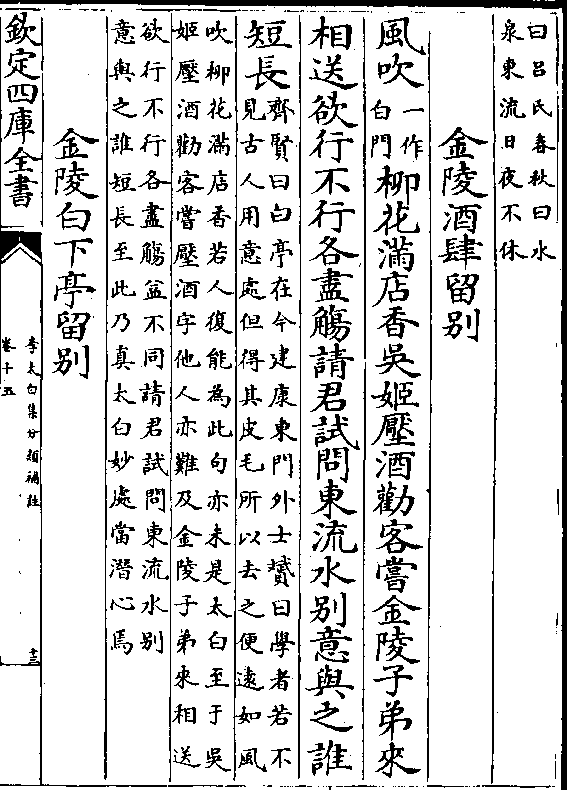 曰吕氏春秋曰水
泉東流日夜不休
金陵酒肆留别
風吹一作白門柳花滿店香吳姬壓酒勸客嘗金陵子弟來
相送欲行不行各盡觴請君試問東流水别意與之誰
短長齊賢曰白亭在今建康東門外士贇曰學者若不
見古人用意處但得其皮毛所以去之便逺如風
吹柳花滿店香若人復能為此句亦未是太白至于吳
姬壓酒勸客嘗壓酒字他人亦難及金陵子弟來相送
欲行不行各盡觴益不同請君試問東流水别
意與之誰短長至此乃真太白妙處當潛心焉
金陵白下亭留别
欽定四庫全書
李太白集分類補註
卷十五
十三